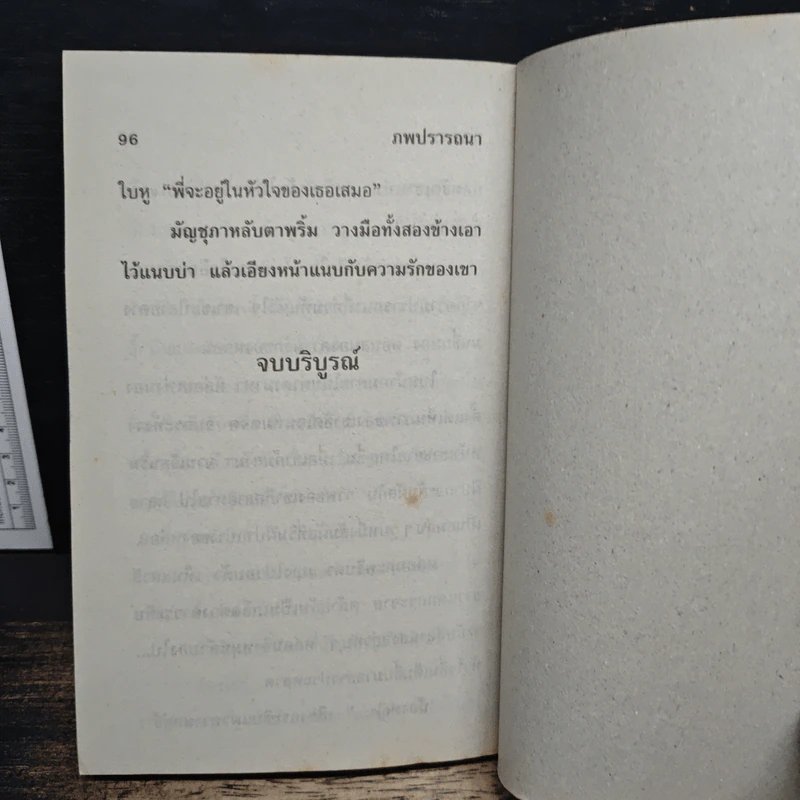 96 ภพปรารถนา
ใบหู “พี่จะอยู่ในหัวใจของเธอเสมอ”
มัญชุภาหลับตาพริ้ม วางมือทั้งสองข้างเอา
ไว้แนบบ่า แล้วเอียงหน้าแนบกับความรักของเขา
จบบริบูรณ์